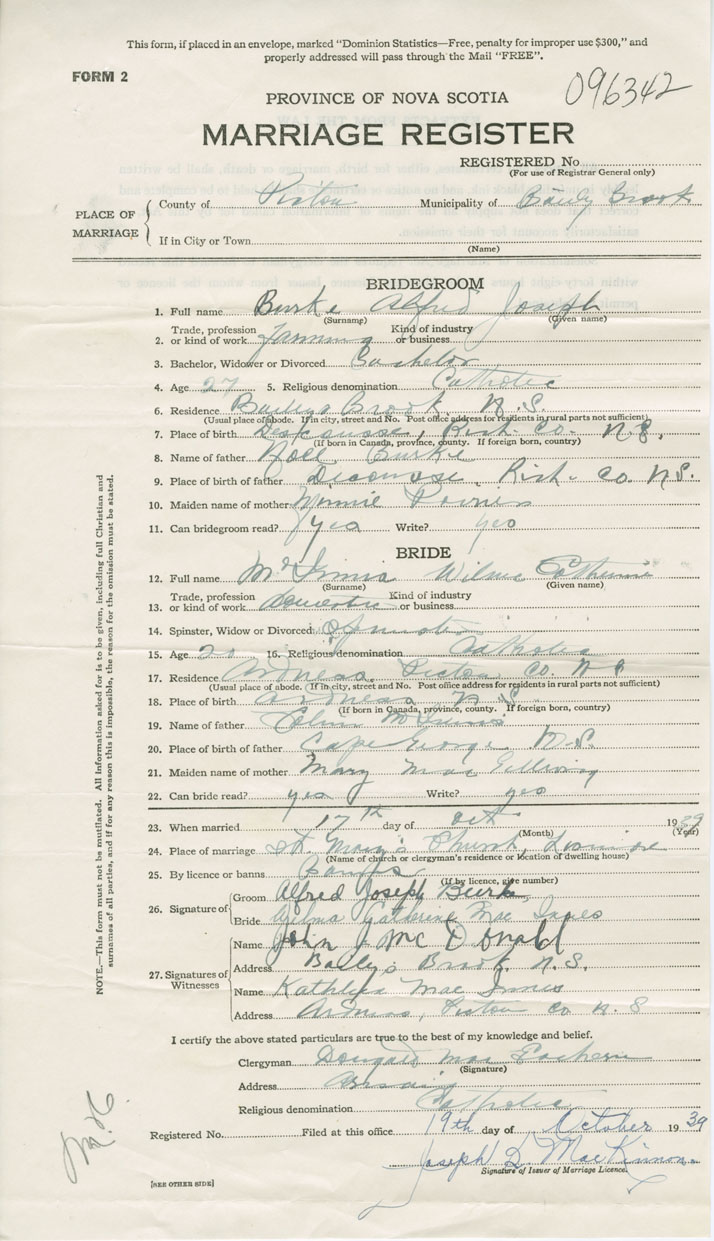 This form, if placed in an envelope, marked "Dominion Statistics—Free, penalty for improper use $300," and
properly addressed will pass through the Mail "FREE".
FORM 2
096342
PROVINCE OF NOVA SCOTIA
MARRIAGE REGISTER
REGISTERED No.
(For use of Registrar General only)
PLACE OF MARRIAGE
County of Pictou Municipality of Baily Brook
If in City or Town
(Name)
BRIDEGROOM
1. Full name Burke Alfred Joseph
(Surname) (Given name)
2. Trade, profession or kind of work Farming Kind of industry or business
3. Bachelor, Widower or Divorced Bachelor
4. Age 27 5. Religious denomination Catholic
6. Residence Baileys Brook N.S.
(Usual place of abode. If in city, street and No. Post office address for residents in rural parts not sufficient)
7. Place of birth Descousse, Rich. Co. N.S.
(If born in Canada, province, county. If foreign born, country)
8. Name of father Noel Burke
9. Place of birth of father Rich. Co. N.S.
10. Maiden name of mother Minnie
11. Can bridegroom read? yea Write? yeo
BRIDE
12. Full name Wilma Catherine
(Surname) (Given name)
13. Trade, profession or kind of work domestic Kind of industry or business
14. Spinster, Widow or Divorced Spinster
15. Age 20 16. Religious denomination Catholic
17. Residence Ardness Pictou Co. N S
(Usual place of abode. If in city, street and No. Post office address for residents in rural parts not sufficient)
18. Place of birth Ardness N S
(If born in Canada, province, county. If foreign born, country)
19. Name of father Colin McInnis
20. Place of birth of father Cape George, N.S.
21. Maiden name of mother Mary Mac Gillivray
22. Can bride read? yea Write? yeo
23. When married 17th day of Oct. 1939
(Month) (Year)
24. Place of marriage St. Mary's Church,
(Name of church or clergyman's residence or location of dwelling house)
25. By licence or banns Banns
(If by licence, give number)
26. Signature of
Groom Alfred Joseph Burk
Bride Wilma Catherine Mac Innes
27. Signatures of Witnesses
Name John J Mc Donald
Address Bailys Brook. N.S.
Name Kathleen Mac Innis
Address Ardness, Pictou Co N. S
I certify the above stated particulars are true to the best of my knowledge and belief.
Clergyman Dougald Mac Eachern
(Signature)
Address
Religious denomination Catholic
Registered No. Filed at this office 19th day of October 1939
Joseph D. MacKinnon
Signature of Issuer of Marriage Licence.
[SEE OTHER SIDE]
NOTE.—This form must not be mutilated. All Information asked for is to be given, including full Christian and
surnames of all parties, and if for any reason this is impossible, the reason for the omission must be stated.